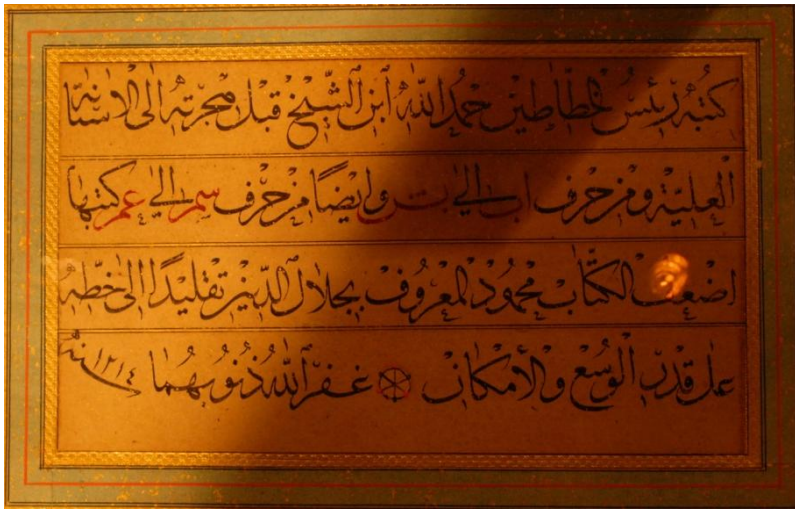 كتبه رئيس الخطاطين حمد الله ابن الشيخ قبل هجرته الى الاستانة
العلية ومن حرف اب الى بت وايضا من حرف سم الى عم كتبها
اضعف الكتاب محمود المعروف بجلال الدين تقليدا الى خطه
على قدر الوسع والامكان غفر الله ذنوبهما سنه ١٢١٤